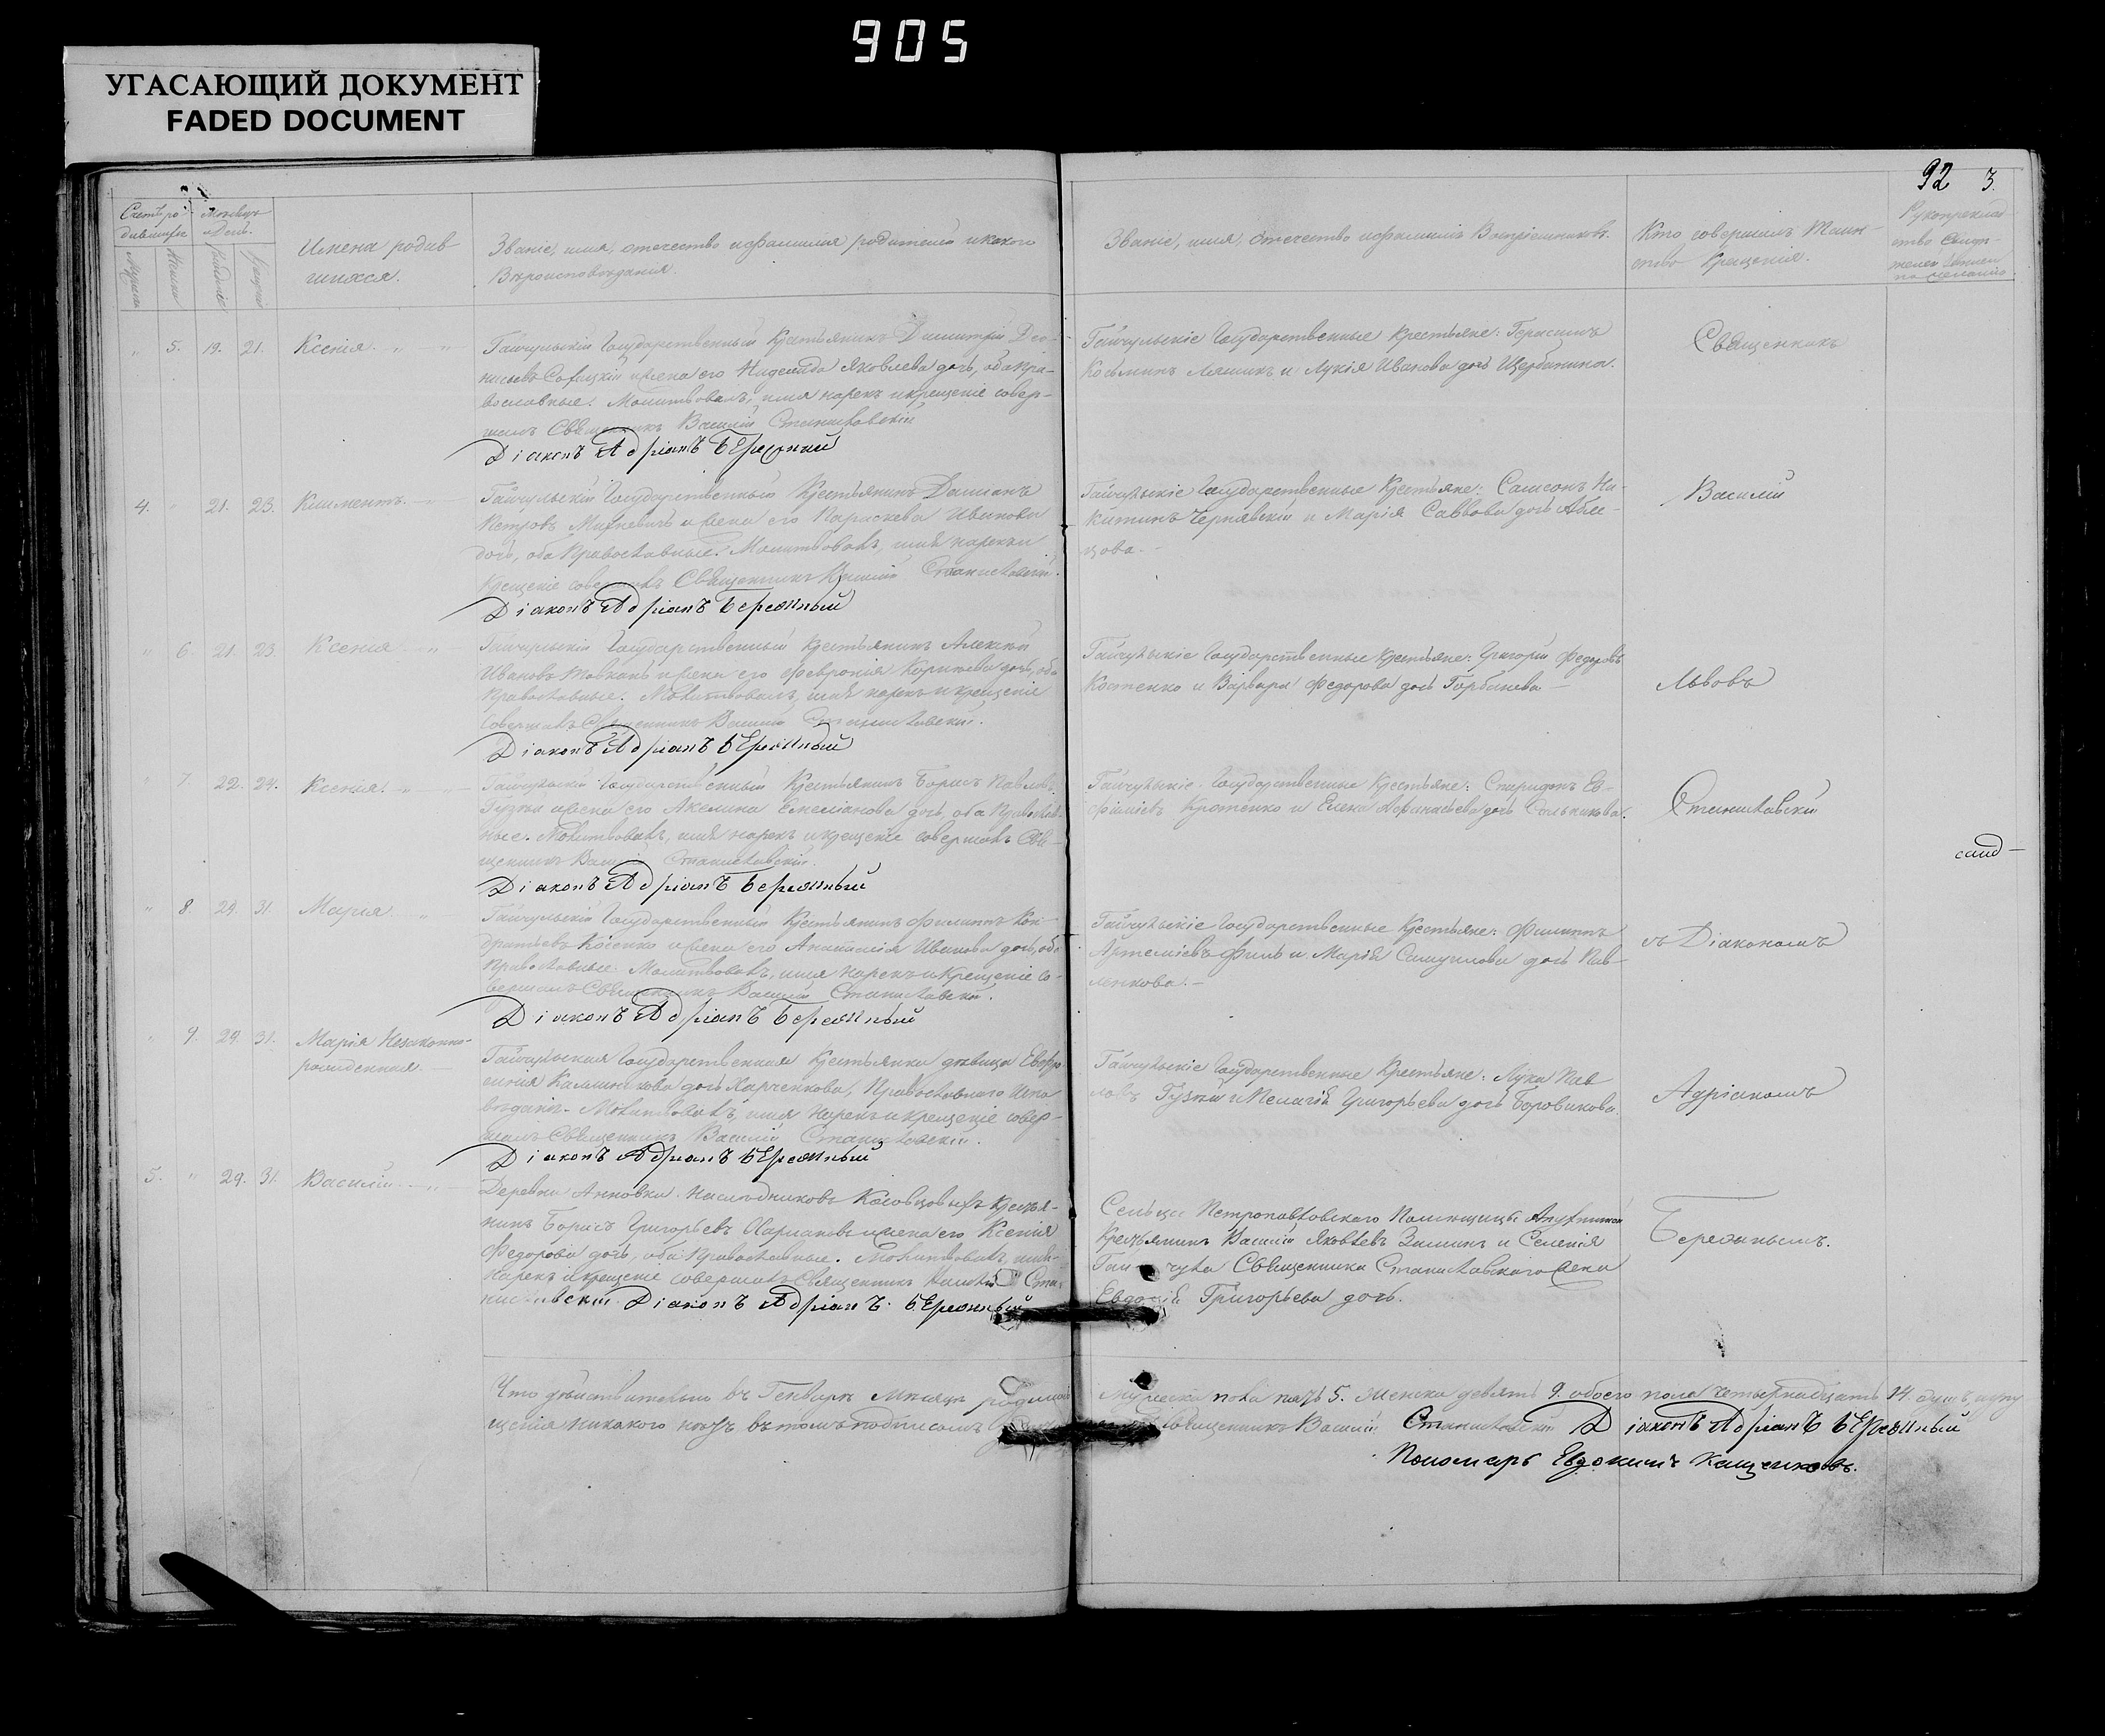 905
УГАСАЮЩИЙ ДОКУМЕНТ
FADED DOCUMENT
92 3.
Счетъ ро-
дившихся
Мѣсяцъ
и День.
Имена родив
шихся.
Званіе, имя, отчество и фамилія родителей и какого
Вѣроисповѣданія.
Званіе, имя, отчество и фамилія Воспріемниковъ.
Кто совершалъ Таин-
ство Крещенія.
Рукоприклад
ство Свидѣ-
телей
по желанію.
" 5. 19. 21. Ксенія. " "
Гайчульскій Государственный Крестьянинъ Димитрій Део-
нисьевъ и жена его Яковлева дочь, оба пра-
вославные. Молитвовалъ, имя нарекъ и крещеніе совер-
шилъ Священникъ Василій Станиславскій
Діаконъ Адріанъ Бережный
Гайчульскіе Государственные Крестьяне: Герасимъ
Козьминъ Ляшикъ и Лукія Иванова дочь Щербинина.
Священникъ
4. " 21. 23. Климентъ.
Гайчульскій Государственный Крестьянинъ Даміанъ
Петровъ Михневичъ и жена его Параскева Иванова
дочь, оба Православные. Молитвовалъ, имя нарекъ и
Крещеніе совершилъ Священникъ Василій Станиславскій.
Діаконъ Адріанъ Бережный
Гайчульскіе Государственные Крестьяне: Самсонъ Ни-
китинъ Чернявскій и Марія Саввова дочь Абле-
цова.
Василій
" 6. 21. 23. Ксенія "
Гайчульскій Государственный Крестьянинъ Алексѣй
Ивановъ Товканъ и жена его Февронія дочь, оба
Православные. Молитвовалъ, имя нарекъ и крещеніе
совершилъ Священникъ Василій Станиславскій.
Діаконъ Адріанъ Бережный
Гайчульскіе Государственные Крестьяне: Григорій Федоровъ
Костенко и Варвара Федорова дочь Горбанева
Львовъ
" 7. 22. 24. Ксенія. " "
Гайчульскій Государственный Крестьянинъ Борисъ Павловъ
Гузка и жена его Акелина Емеліанова дочь, оба Православ-
ные. Молитвовалъ, имя нарекъ и крещеніе совершилъ Свя-
щенникъ Василій Станиславскій.
Діаконъ Адріанъ Бережный
Гайчульскіе Государственные Крестьяне: Спиридонъ Ев-
фиміевъ Кротенко и Елена Афанасьева дочь
Станиславскій
" 8. 29. 31. Марія "
Гайчульскій Государственный Крестьянинъ Филиппъ Кон-
дратьевъ Косенко и жена его Анастасія Иванова дочь, оба
Православные. Молитвовалъ, имя нарекъ и Крещеніе со-
вершилъ Священникъ Василій Станиславскій.
Діаконъ Адріанъ Бережный
Гайчульскіе Государственные Крестьяне: Филиппъ
Артеміевъ Финь и Марія Самуилова дочь Пав-
ленкова.
съ Діакономъ
" 9. 29. 31. Марія Незаконно-
рожденная.
Гайчульская Государственная Крестьянка дѣвица Евфро
синія Каллиникова дочь Харченкова, Православнаго Испо
вѣданія. Молитвовалъ, имя нарекъ и крещеніе совер-
шилъ Священникъ Василій Станиславскій.
Діаконъ Адріанъ Бережный
Гайчульскіе Государственные Крестьяне: Лука Пав
ловъ Гузка и Пелагія Григорьева дочь Боровикова.
Адріаномъ
5. " 29. 31. Василій "
Деревни Анновки Наслѣдниковъ Крестья-
нинъ Борисъ Григорьевъ и жена его Ксенія
Федорова дочь, оба Православные. Молитвовалъ, имя
нарекъ и крещеніе совершилъ Священникъ Василій Ста-
ниславскій. Діаконъ Адріанъ Бережный
Сельца Петропавловскаго Помѣщицы
Крестьянинъ Василій Яковлевъ Зиминъ и Селенія
Гайчула Священника Станиславскаго жена
Евдокія Григорьева дочь.
Бережнымъ.
Что дѣйствительно въ Генварѣ Мѣсяцѣ родилось
мужеска пола пять 5. женска девять 9. обоего пола четырнадцать 14. душъ,
щенія никакого нѣтъ въ томъ подписомъ
Священникъ Василій Станиславскій Діаконъ Адріанъ Бережный
Пономарь Евдокимъ Кащенковъ.